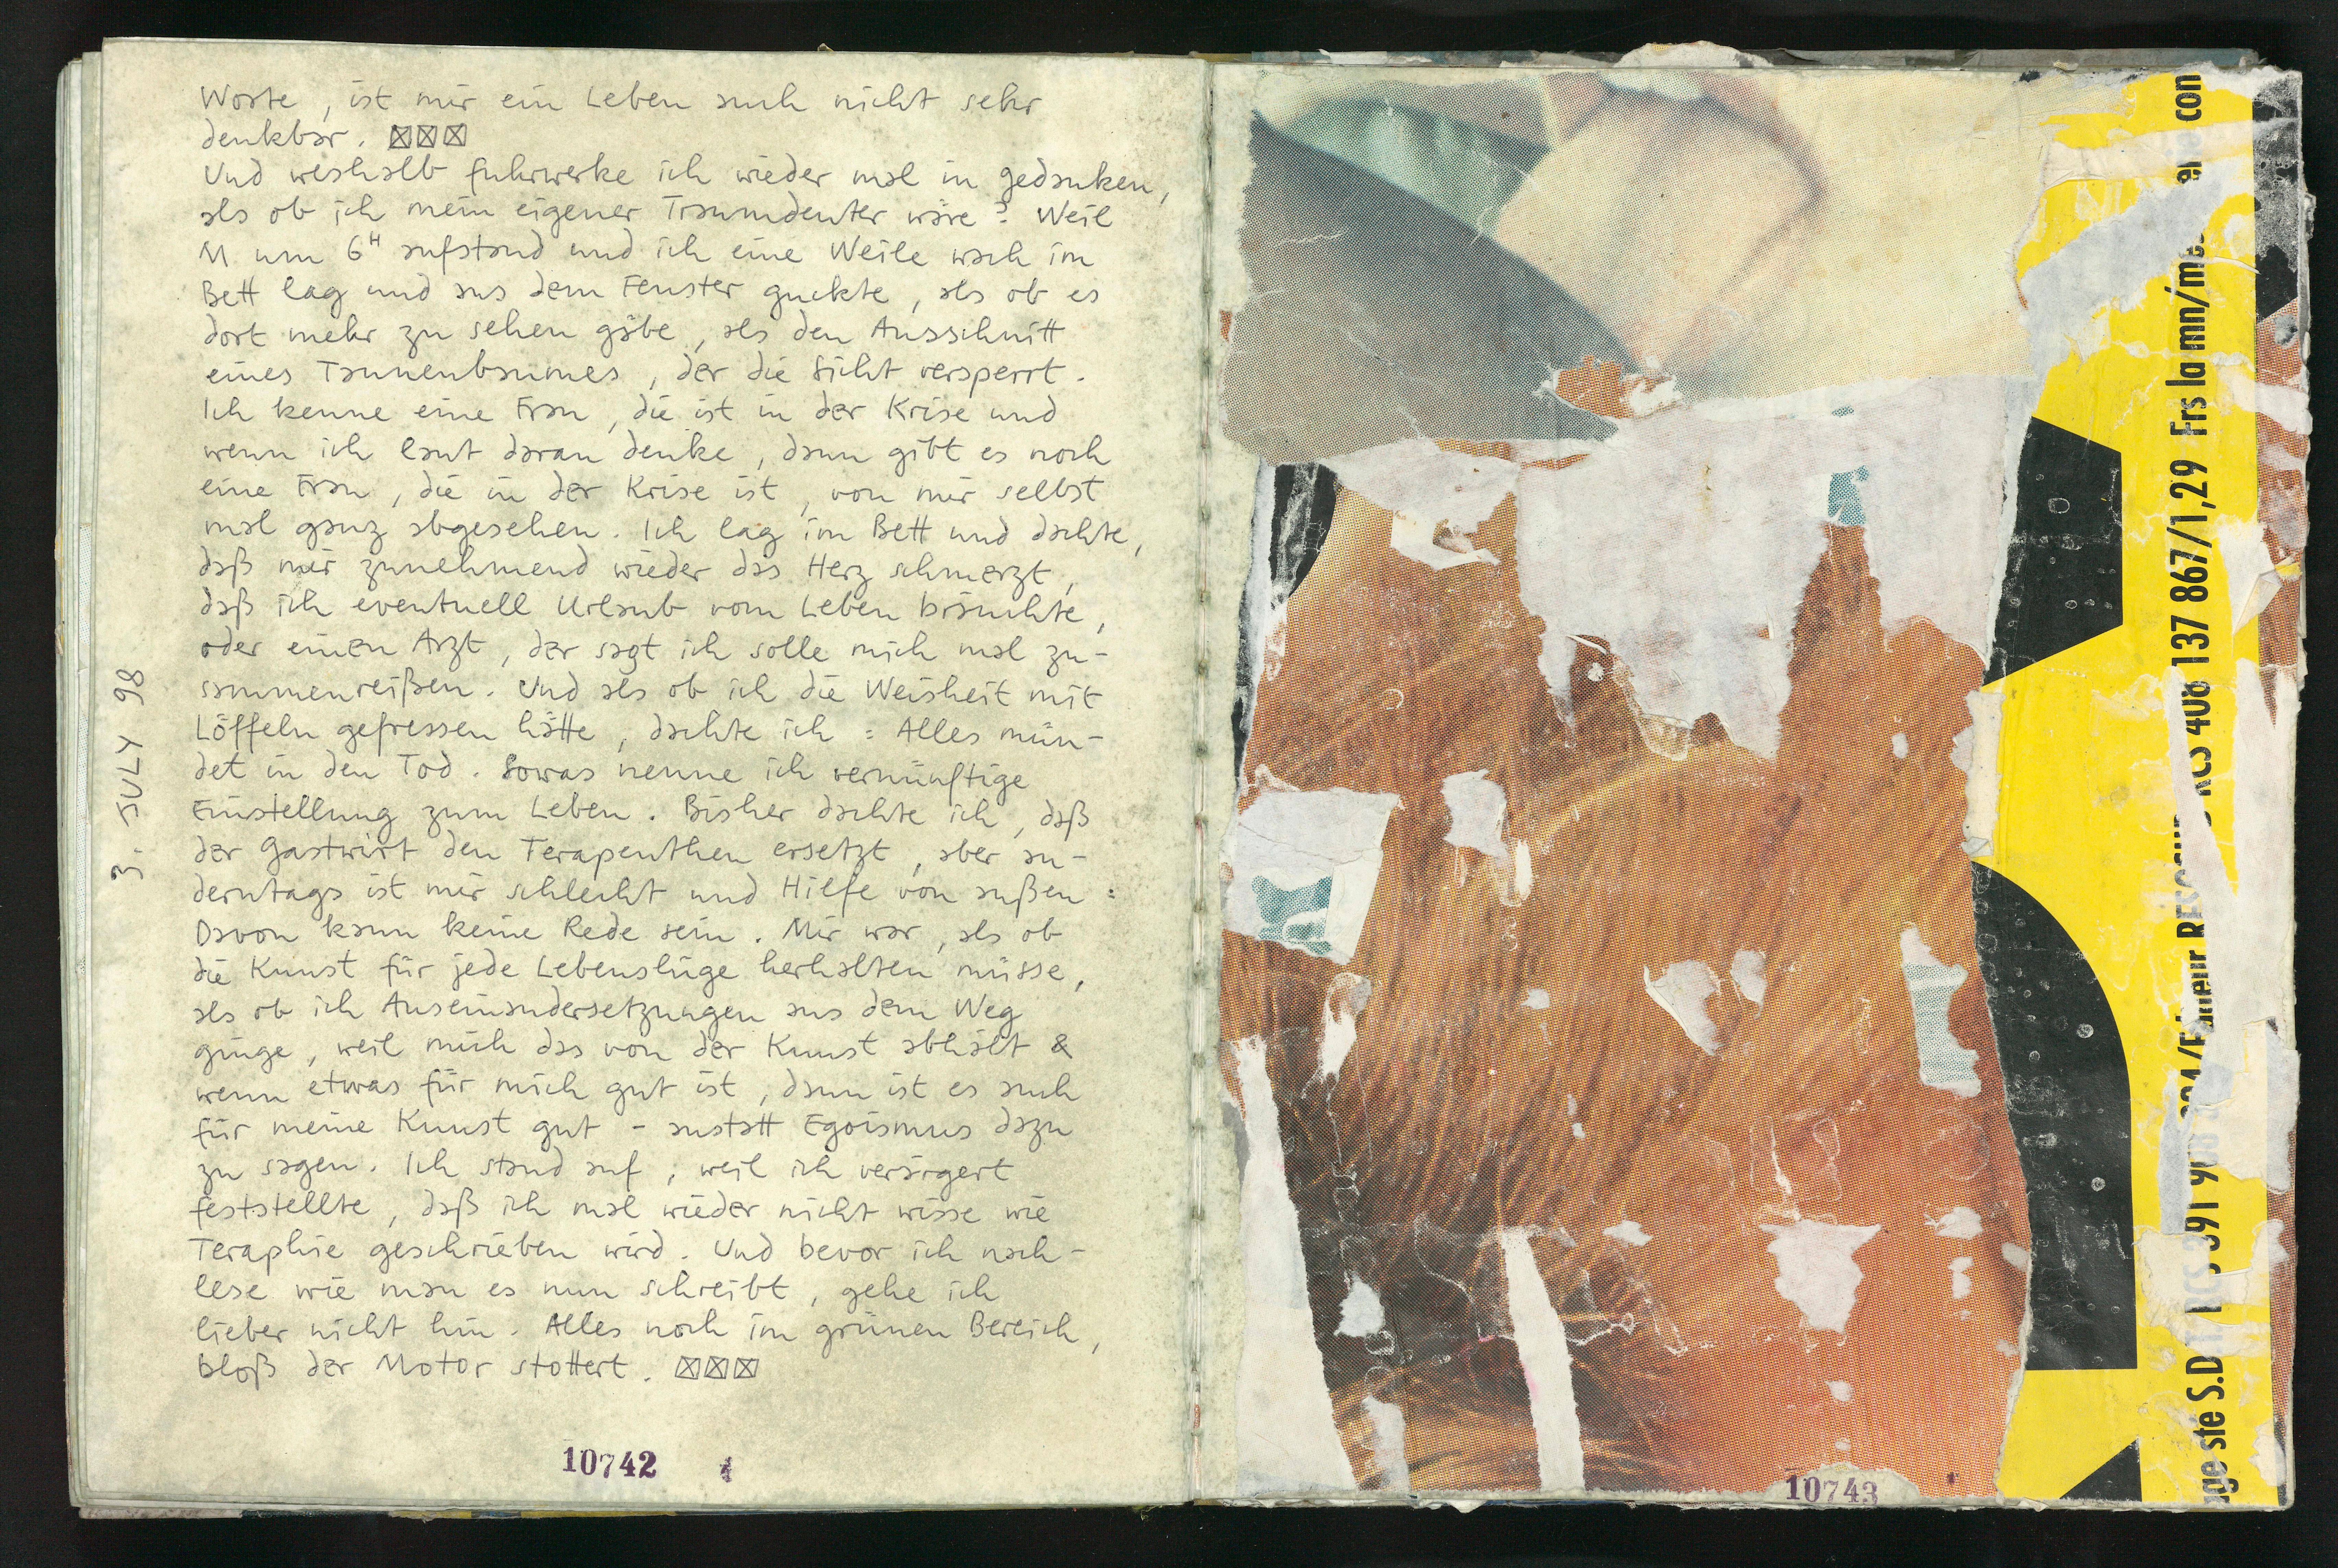 Worte, ist mir ein Leben auch nicht sehr
denkbar. ☒☒☒
Und weshalb fuhrwerke ich wieder mal in gedanken,
als ob ich mein eigener Traumdeuter wäre? Weil
M um 6H aufstand und ich eine Weile wach im
Bett lag und aus dem Fenster guckte, als ob es
dort mehr zu sehen gäbe, als den Ausschnitt
eines Tannenbaumes, der die Sicht versperrt.
Ich kenne eine Frau, die ist in der Krise und
wenn ich laut daran denke, dann gibt es noch
eine Frau, die in der Krise ist, von mir selbst
mal ganz abgesehen. Ich lag im Bett und dachte,
daß mir zunehmend wieder das Herz schmerzt,
daß ich eventuell Urlaub vom Leben bräuchte,
oder einen Arzt, der sagt ich solle mich mal zu-
sammenreißen. Und als ob ich die Weisheit mit
Löffeln gefressen hätte, dachte ich: Alles mün-
det in den Tod. Sowas nenne ich vernünftige
Einstellung zum Leben. Bisher dachte ich, daß
der Gastwirt den Terapeuthen ersetzt, aber an-
derntags ist mir schlecht und Hilfe von außen:
Davon kann keine Rede sein. Mir war, als ob
die Kunst für jede Lebenslüge herhalten müsse,
als ob ich Auseinandersetzungen aus dem Weg
ginge, weil mich das von der Kunst abhält &
wenn etwas für mich gut ist, dann ist es auch
für meine Kunst gut - anstatt Egoismus dazu
zu sagen. Ich stand auf, weil ich verärgert
feststellte, daß ich mal wieder nicht wisse wie
Teraphie geschrieben wird. Und bevor ich nach-
lese wie man es nun schreibt, gehe ich
lieber nicht hin. Alles noch im grünen Bereich,
bloß der Motor stottert. ☒☒☒
3. JULY 98
10742
10743
ste S.D
RCS 406 137 867/1,29 Frs la mn/me
con